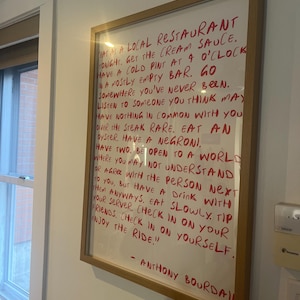 "EAT AT A LOCAL RESTAURANT
TONIGHT. GET THE CREAM SAUCE.
HAVE A COLD PINT AT 4 O'CLOCK
IN A MOSTLY EMPTY BAR. GO
SOMEWHERE YOU'VE NEVER BEEN.
LISTEN TO SOMEONE YOU THINK MAY
HAVE NOTHING IN COMMON WITH YOU.
ORDER THE STEAK RARE. EAT AN
OYSTER. HAVE A NEGRONI.
HAVE TWO. BE OPEN TO A WORLD
WHERE YOU MAY NOT UNDERSTAND
OR AGREE WITH THE PERSON NEXT
TO YOU, BUT HAVE A DRINK WITH
THEM ANYWAYS. EAT SLOWLY. TIP
YOUR SERVER. CHECK IN ON YOUR
FRIENDS. CHECK IN ON YOURSELF.
ENJOY THE RIDE."
- ANTHONY BOURDAI